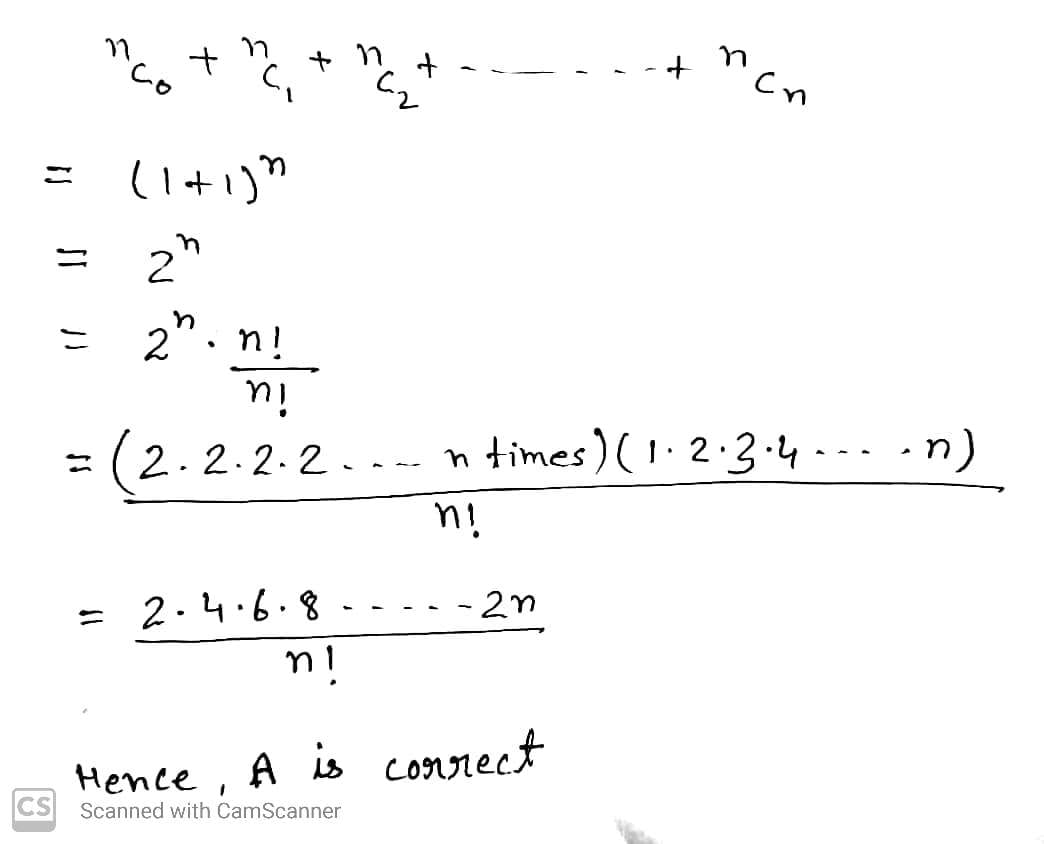 ⁿC₀ + ⁿC₁ + ⁿC₂ + - - - - - - + ⁿCₙ
= (1+1)ⁿ
= 2ⁿ
= 2ⁿ . n!
n!
= (2.2.2.2 . - - - n times)(1.2.3.4 - - - . n)
n!
= 2.4.6.8 - - - - - 2n
n!
Hence, A is correct
CS Scanned with CamScanner